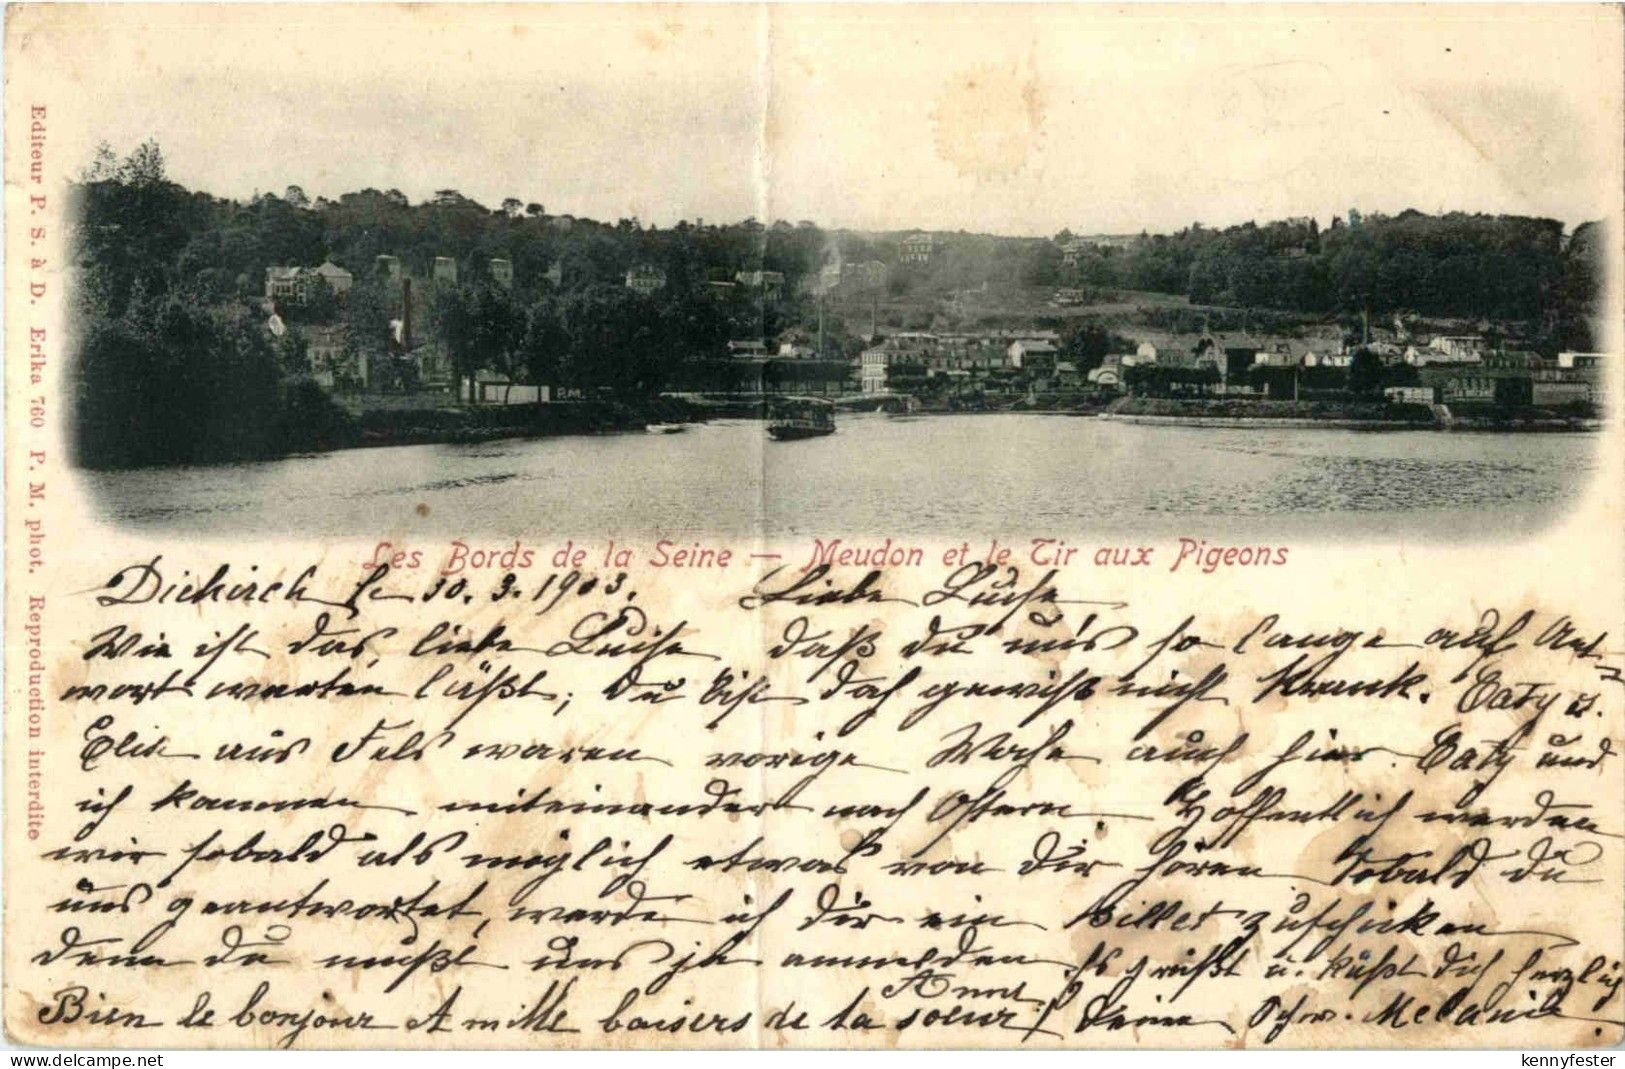 Editeur P. S. à D. Erika 760 P. M. phot. Reproduction interdite
P.M.
Les Bords de la Seine — Meudon et le Tir aux Pigeons
Diekirch le 30. 3. 1903. Liebe Luise
Wie ist das, liebe Luise daß du uns so lange auf Ant-
wort warten läßt, Du bist doch gewiß nicht krank. Caty u.
Elise aus Fels waren vorige Woche auch hier. Caty und
ich kommen miteinander nach Ostern. Hoffentlich werden
wir sobald als möglich etwas von dir hören Sobald du
uns geantwortet, werde ich dir ein Billet zuschicken
denn du mußt uns ja anmelden Es grüßt u. küßt dich herzlich
Bien le bonjour et mille baisers de ta soeur Anna Deine Schw. Melanie.
kennyfester